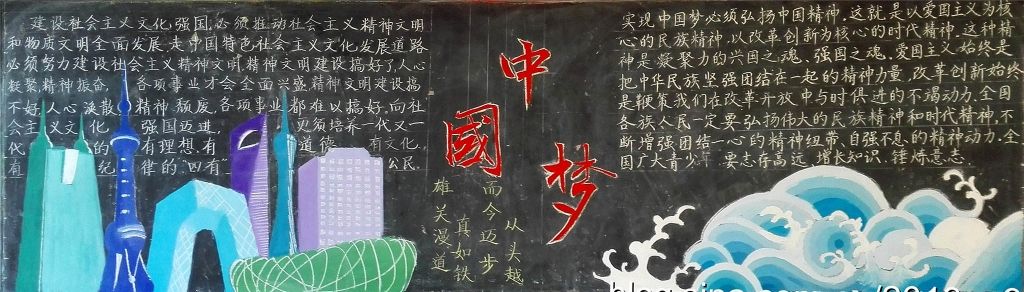 建设社会主义文化强国,必须推动社会主义精神文明
和物质文明全面发展,走中国特色社会主义文化发展道路
必须努力建设社会主义精神文明,精神文明建设搞好了,人心
凝聚,精神振奋,各项事业才会全面兴盛,精神文明建设搞
不好,人心涣散,精神颓废,各项事业都难以搞好.向社
会主义文化 强国迈进, 必须培养一代又一
代 的 有理想,有道德 有文化,
有 纪律的"四有" 公民.
中國梦
雄关漫道
真如铁
而今迈步
从头越
实现中国梦必须弘扬中国精神,这就是以爱国主义为核
心的民族精神,以改革创新为核心的时代精神,这种精
神是凝聚力的兴国之魂、强国之魂,爱国主义始终是
把中华民族坚强团结在一起的精神力量,改革创新始终
是鞭策我们在改革开放中与时俱进的不竭动力,全国
各族人民一定要弘扬伟大的民族精神和时代精神,不
断增强团结一心的精神纽带、自强不息的精神动力,全
国广大青少年 要志存高远,增长知识,锤炼意志